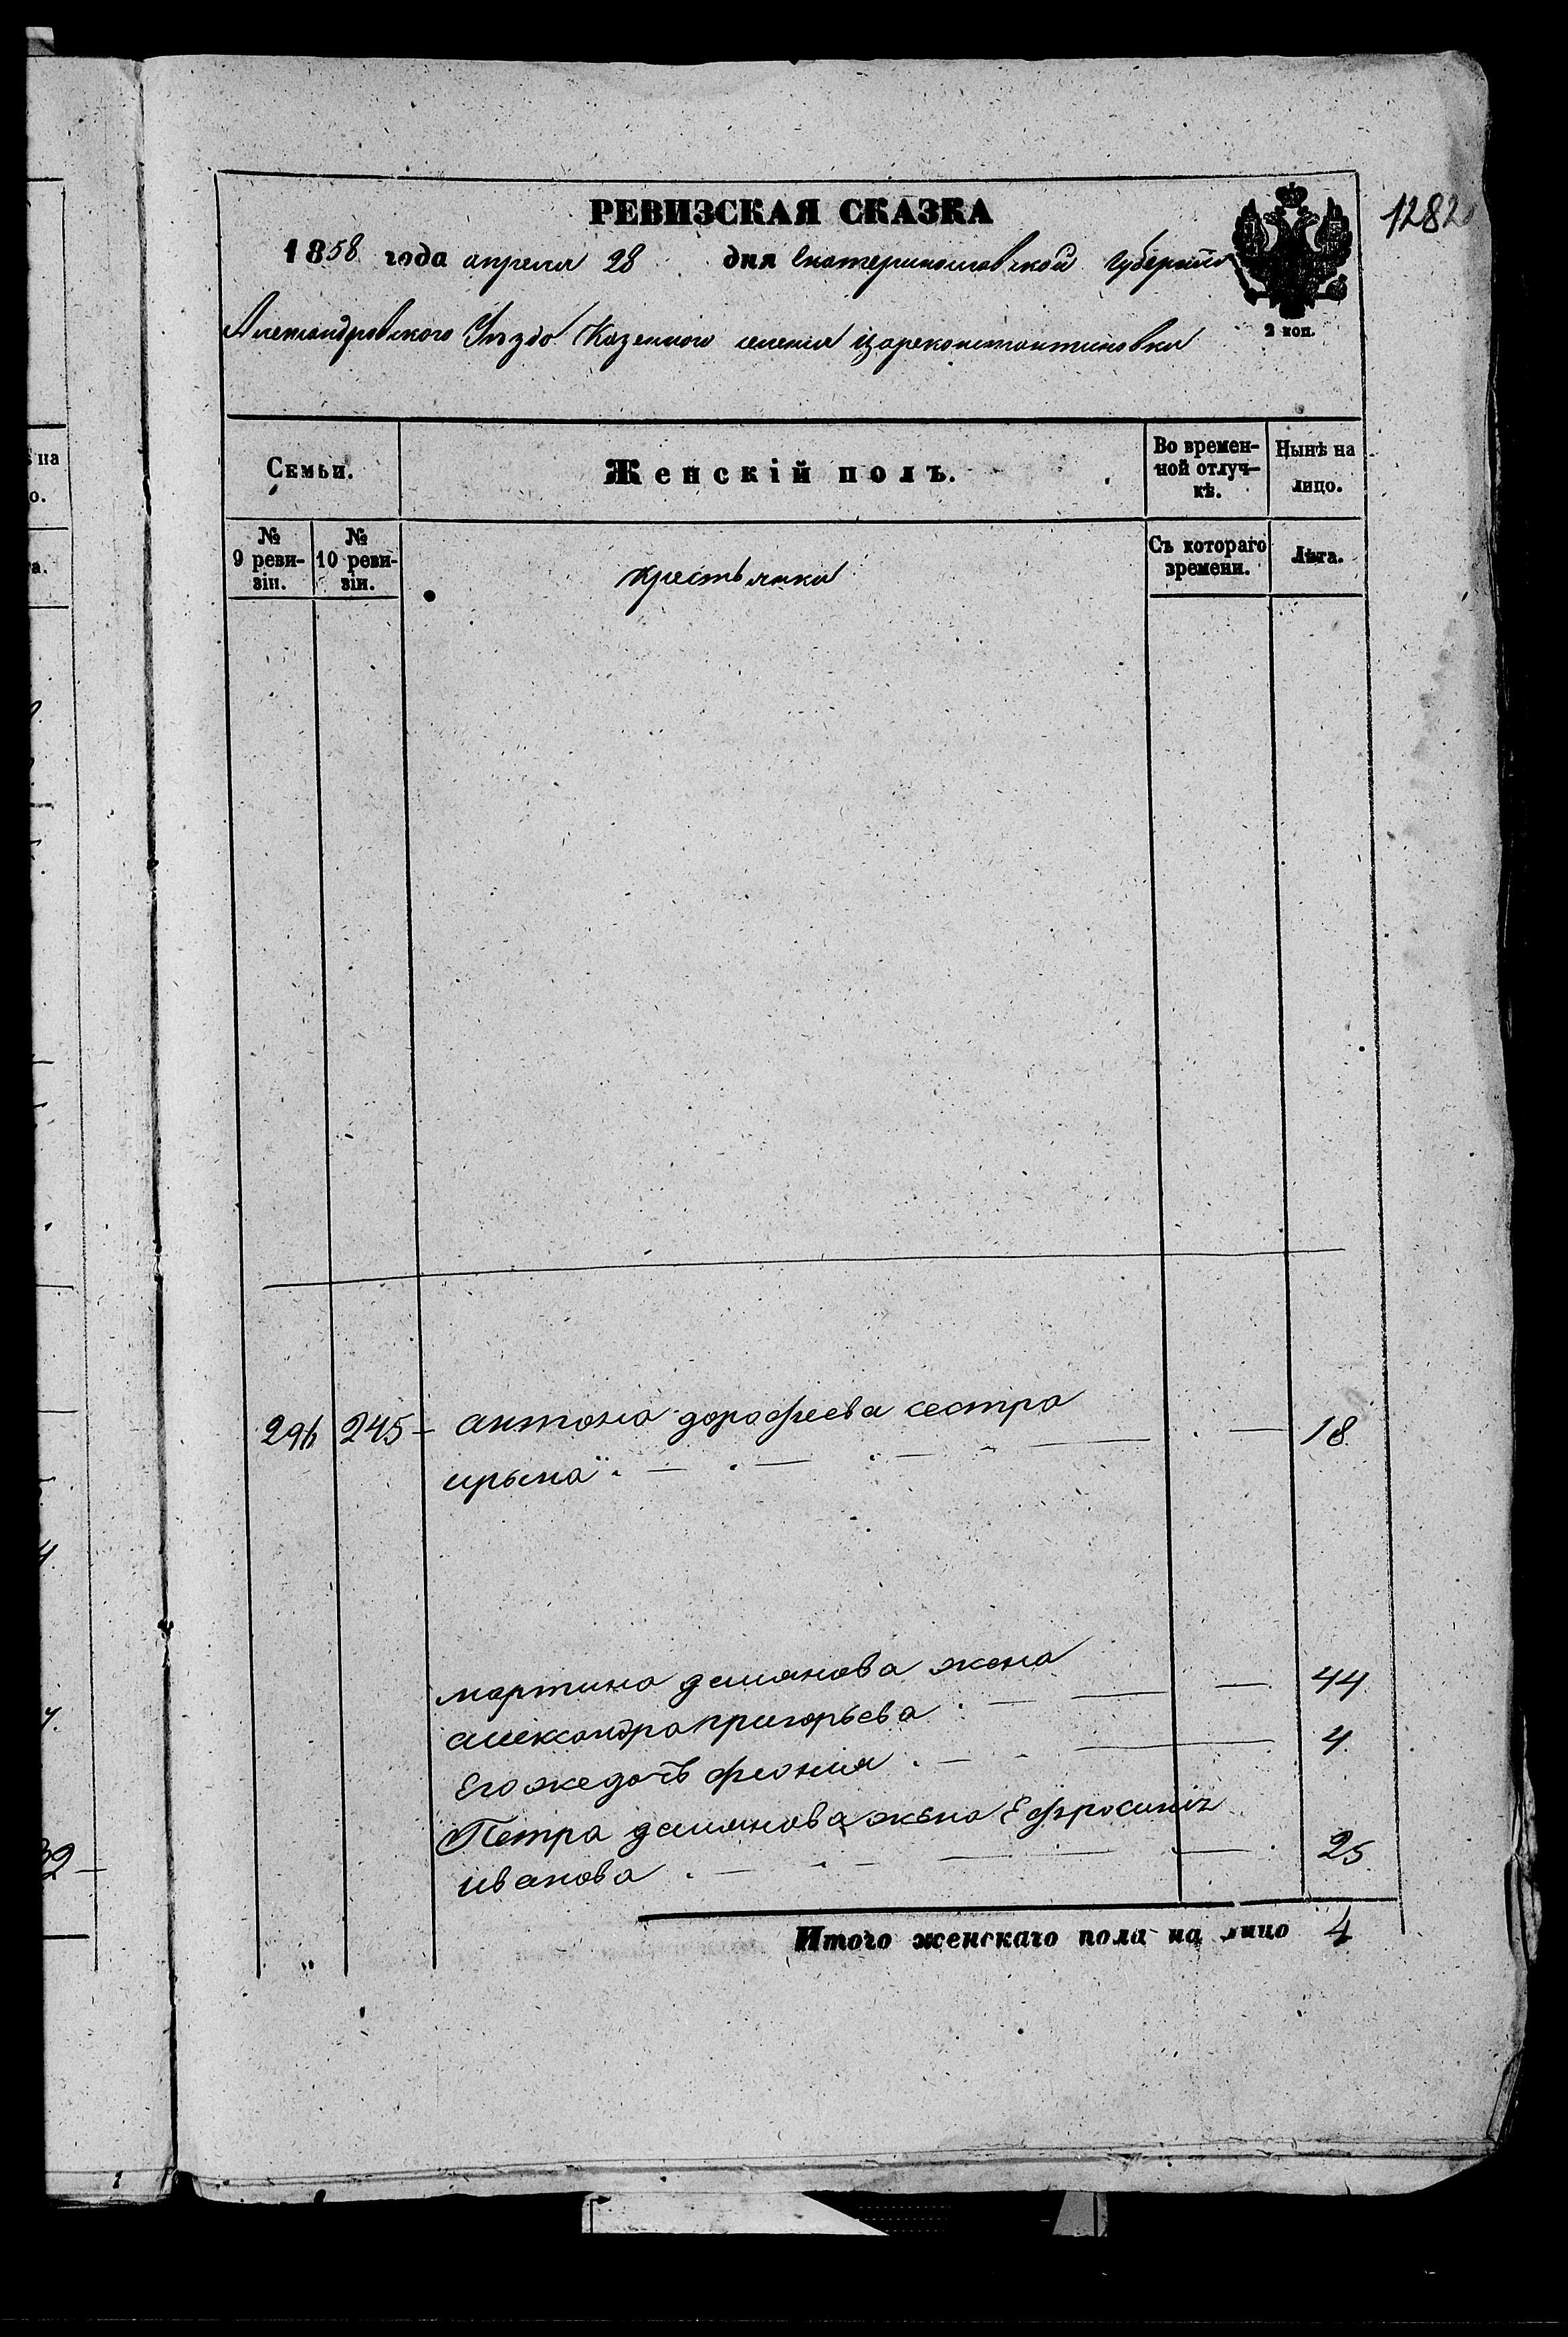 РЕВИЗСКАЯ СКАЗКА
1282
1858 года апреля 28 дня Екатеринославской Губернии
2 коп.
Александровского Уезда Казенного селения Цареконстантиновки
Семьи.
Женскій полъ.
Во времен-
ной отлуч-
кѣ.
Нынѣ на
лицо.
№
9 реви-
зіи.
№
10 реви-
зіи.
крестьянки
Съ котораго
времени.
Лѣта.
296 245 антона дорофеева сестра
ирына 18
мартина демянова жена
александра григорьева 44
Его же дочь феония 4
Петра демянова жена Ефросиния
иванова 25
Итого женскаго пола на лицо 4